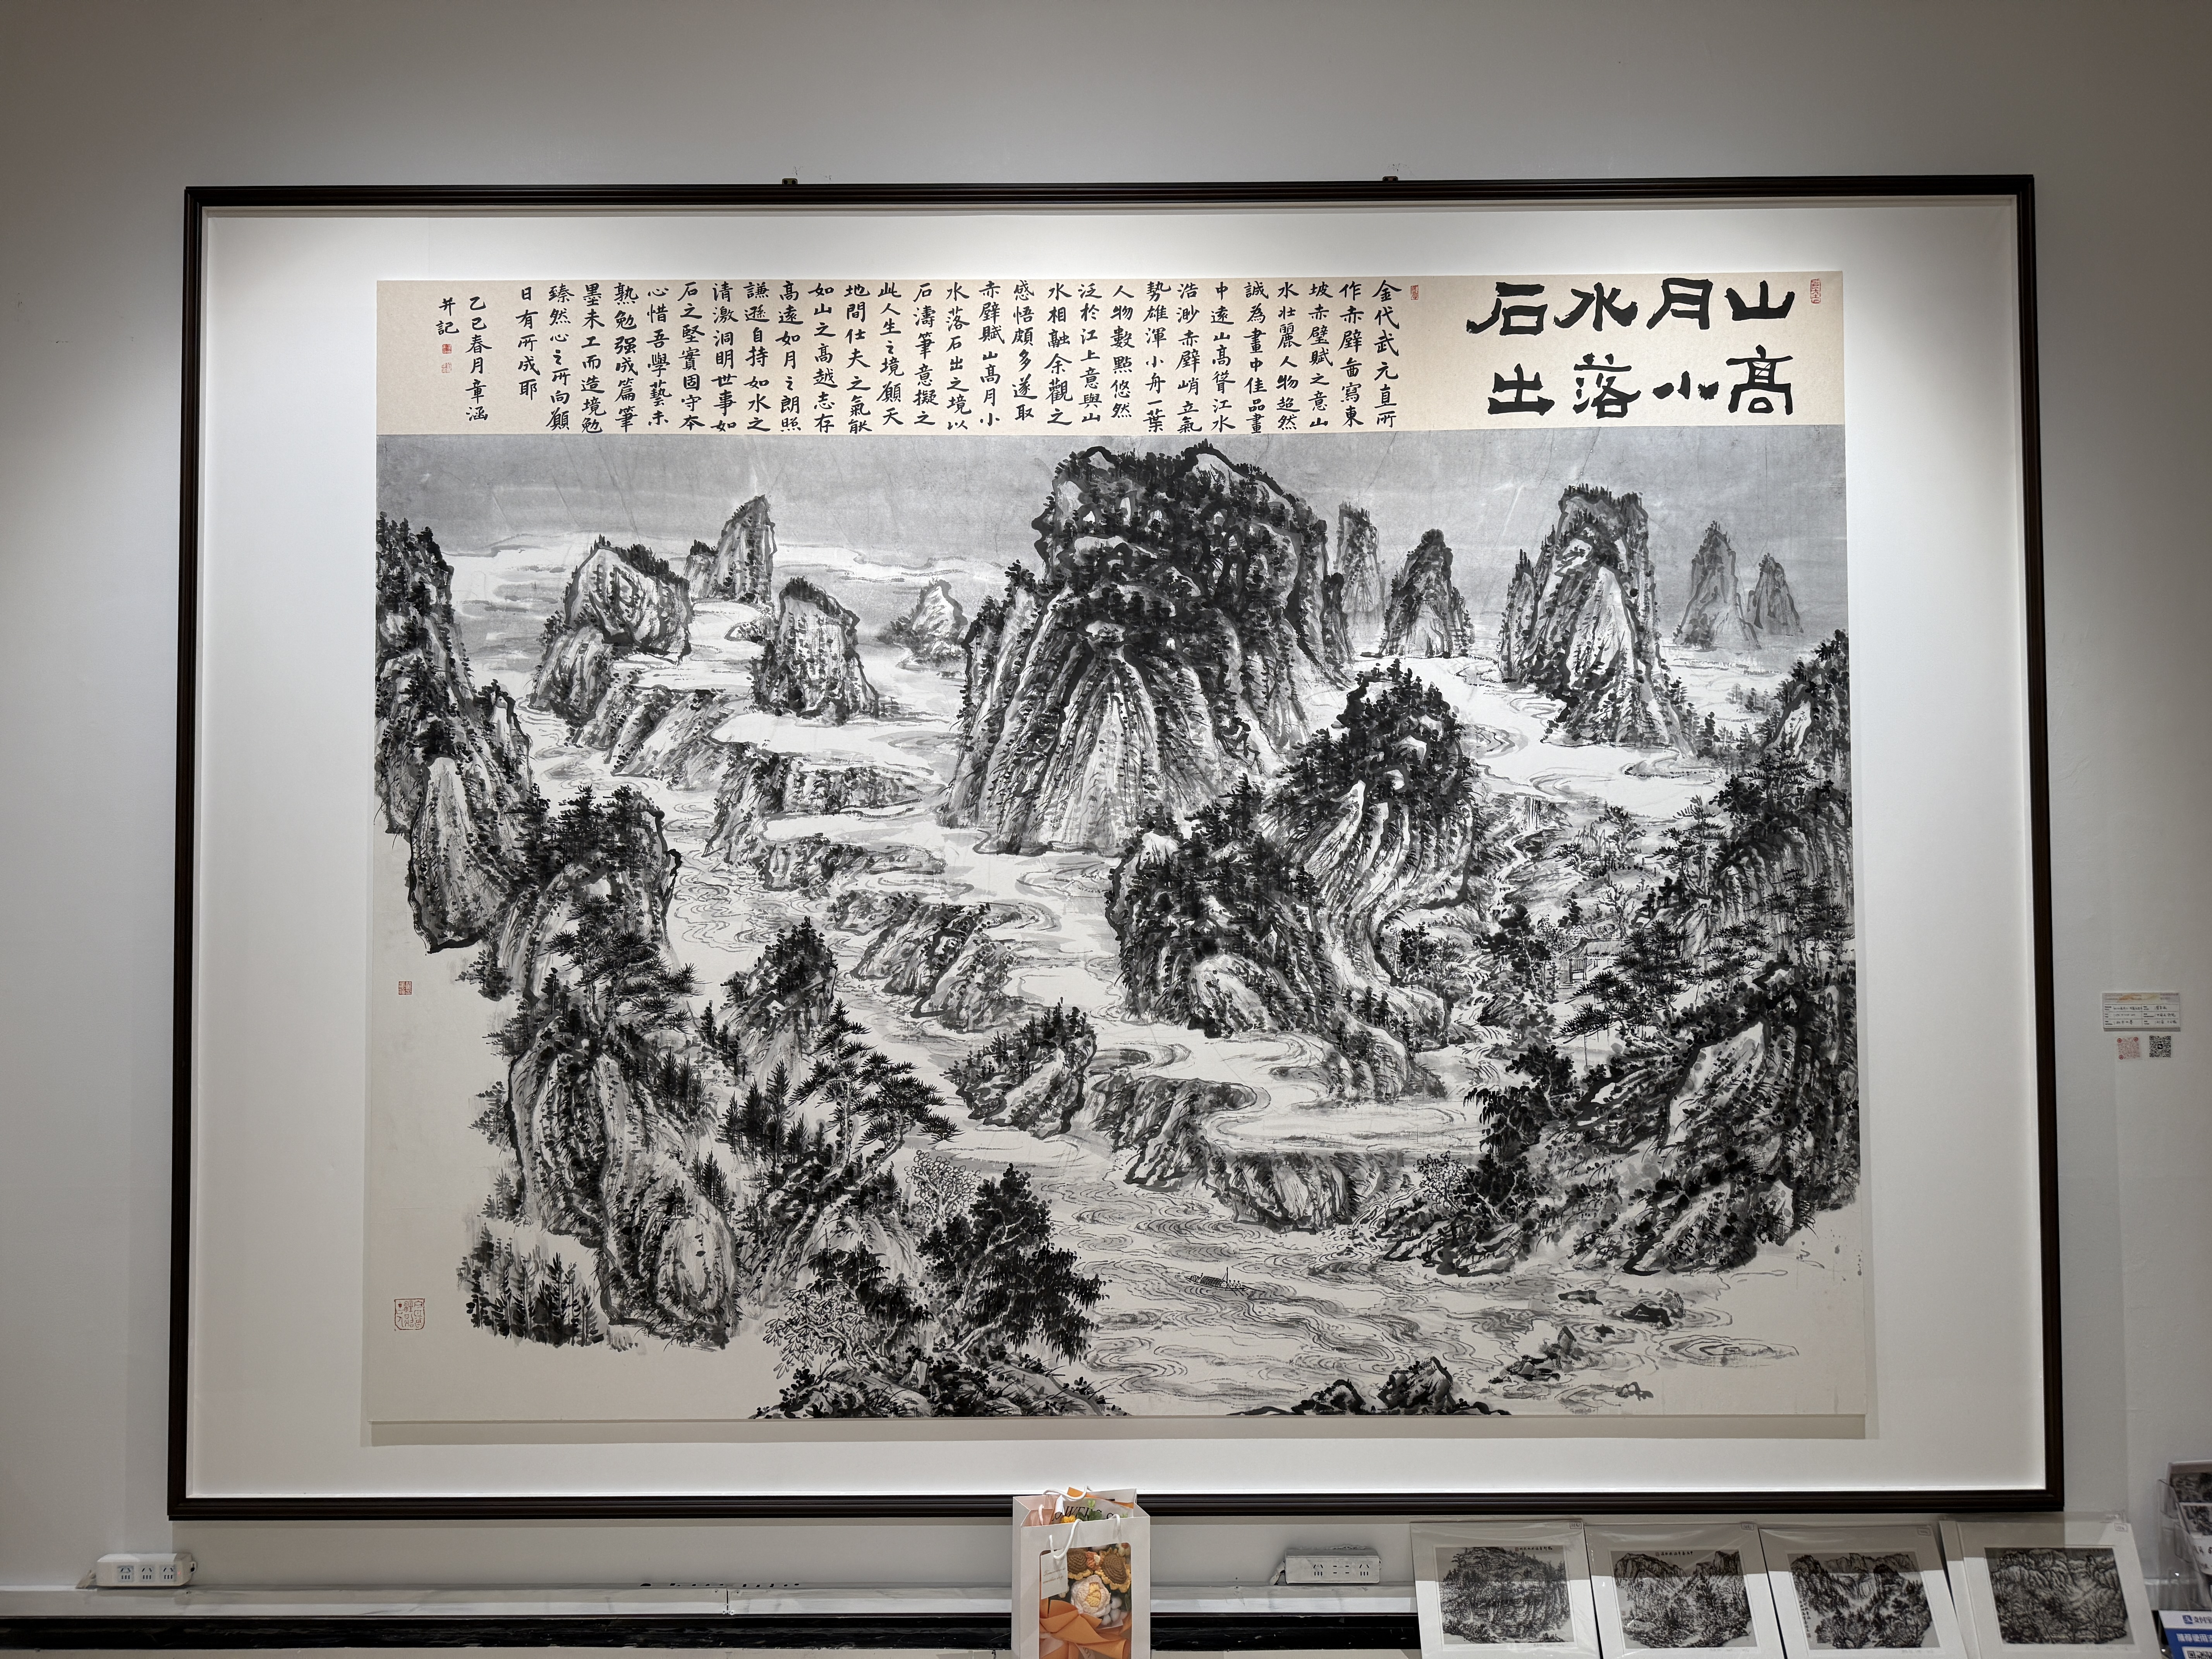 山高
月小
水落
石出
金代武元直所
作赤壁啚寫東
坡赤壁賦之意山
水壮麗人物超然
誠為畫中佳品畫
中遠山高聳江水
浩渺赤壁峭立氣
勢雄渾小舟一葉
人物數點悠然
泛於江上意與山
水相融余觀之
感悟頗多遂取
赤壁賦山高月小
水落石出之境以
石濤筆意擬之
此人生之境願天
地間仕夫之氣能
如山之高越志存
高遠如月之朗照
謙遜自持如水之
清澈洞明世事如
石之堅實固守本
心惜吾學藝未
熟勉强成篇筆
墨未工而造境勉
臻然心之所向願
日有所成耶
乙巳春月章涵
并記